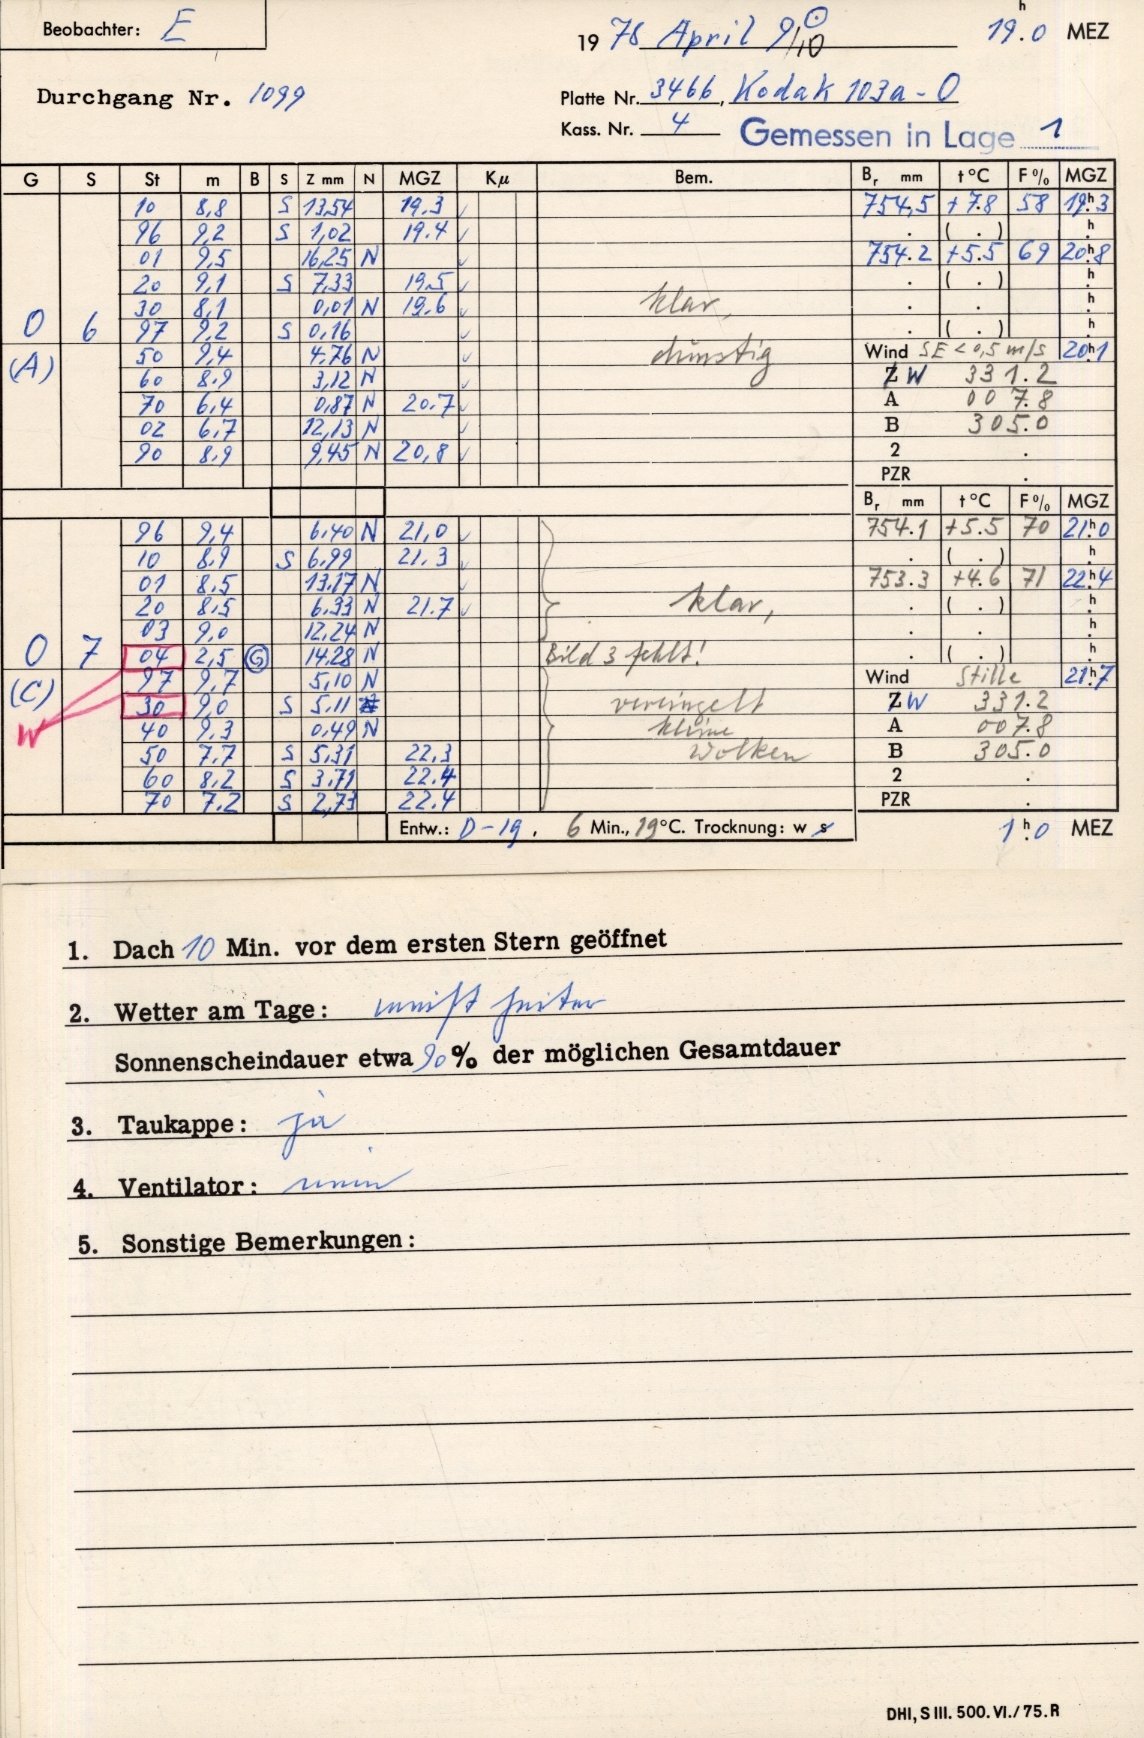 Beobachter: E
1978 April 9/10 19.0 h MEZ
Durchgang Nr. 1099
Platte Nr. 3466, Kodak 103a-O
Kass. Nr. 4 Gemessen in Lage 1
G S St m B S Z mm N MGZ Kμ Bem. Br mm t °C F % MGZ
10 8,8 S 13,54 19.3 754,5 +7.8 58 19h3
96 9,2 S 1,02 19.4 . ( . ) h
01 9,5 16,25 N 754.2 +5.5 69 20h8
20 9,1 S 7,33 19,5 . ( . ) h
30 8,1 0,01 N 19,6 klar, . . h
0 6 97 9,2 S 0,16 . ( . ) h
(A) 50 9,4 4.76 N dunstig Wind SE < 0,5 m/s 20h1
60 8.9 3,12 N Z W 331.2
70 6,4 0,87 N 20.7 A 007.8
02 6,7 12,13 N B 305.0
90 8,9 9,45 N 20,8 2 .
PZR .
Br mm t °C F % MGZ
96 9,4 6.40 N 21,0 754.1 +5.5 70 21h0
10 8.9 S 6.99 21.3 . ( . ) h
01 8.5 13.17 N 753.3 +4.6 71 22h4
20 8.5 6.33 N 21.7 klar, . ( . ) h
03 9,0 12,24 N . . h
0 7 04 2,5 G 14.28 N Bild 3 fehlt! . ( . ) h
(C) 97 9,7 5,10 N Wind Stille 21h7
W 30 9,0 S 5.11 vereinzelt Z W 331.2
40 9,3 0,49 N kleine A 007.8
50 7.7 S 5,31 22,3 Wolken B 305.0
60 8,2 S 3.71 22.4 2 .
70 7.2 S 2,73 22.4 PZR .
Entw.: D-19, 6 Min., 19°C. Trocknung: w s 1h0 MEZ
1. Dach 10 Min. vor dem ersten Stern geöffnet
2. Wetter am Tage: meist heiter
Sonnenscheindauer etwa 90% der möglichen Gesamtdauer
3. Taukappe: ja
4. Ventilator: nein
5. Sonstige Bemerkungen:
DHI, S III. 500. VI./75. R